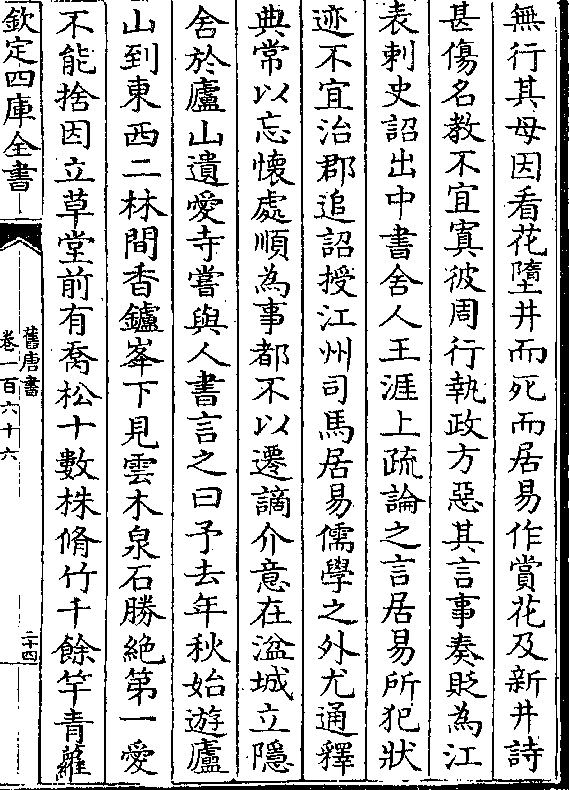 無行其母因看花墮井而死而居易作賞花及新井詩
甚傷名教不宜寘彼周行執政方惡其言事奏貶為江
表刺史詔出中書舍人王涯上疏論之言居易所犯狀
迹不宜治郡追詔授江州司馬居易儒學之外尤通釋
典常以忘懷處順為事都不以遷謫介意在湓城立隱
舍於廬山遺愛寺嘗與人書言之曰予去年秋始遊廬
山到東西二林間香鑪峯下見雲木泉石勝絕第一愛
不能捨因立草堂前有喬松十數株脩竹千餘竿青蘿
欽定四庫全書
舊唐書
卷一百六十六
二十四